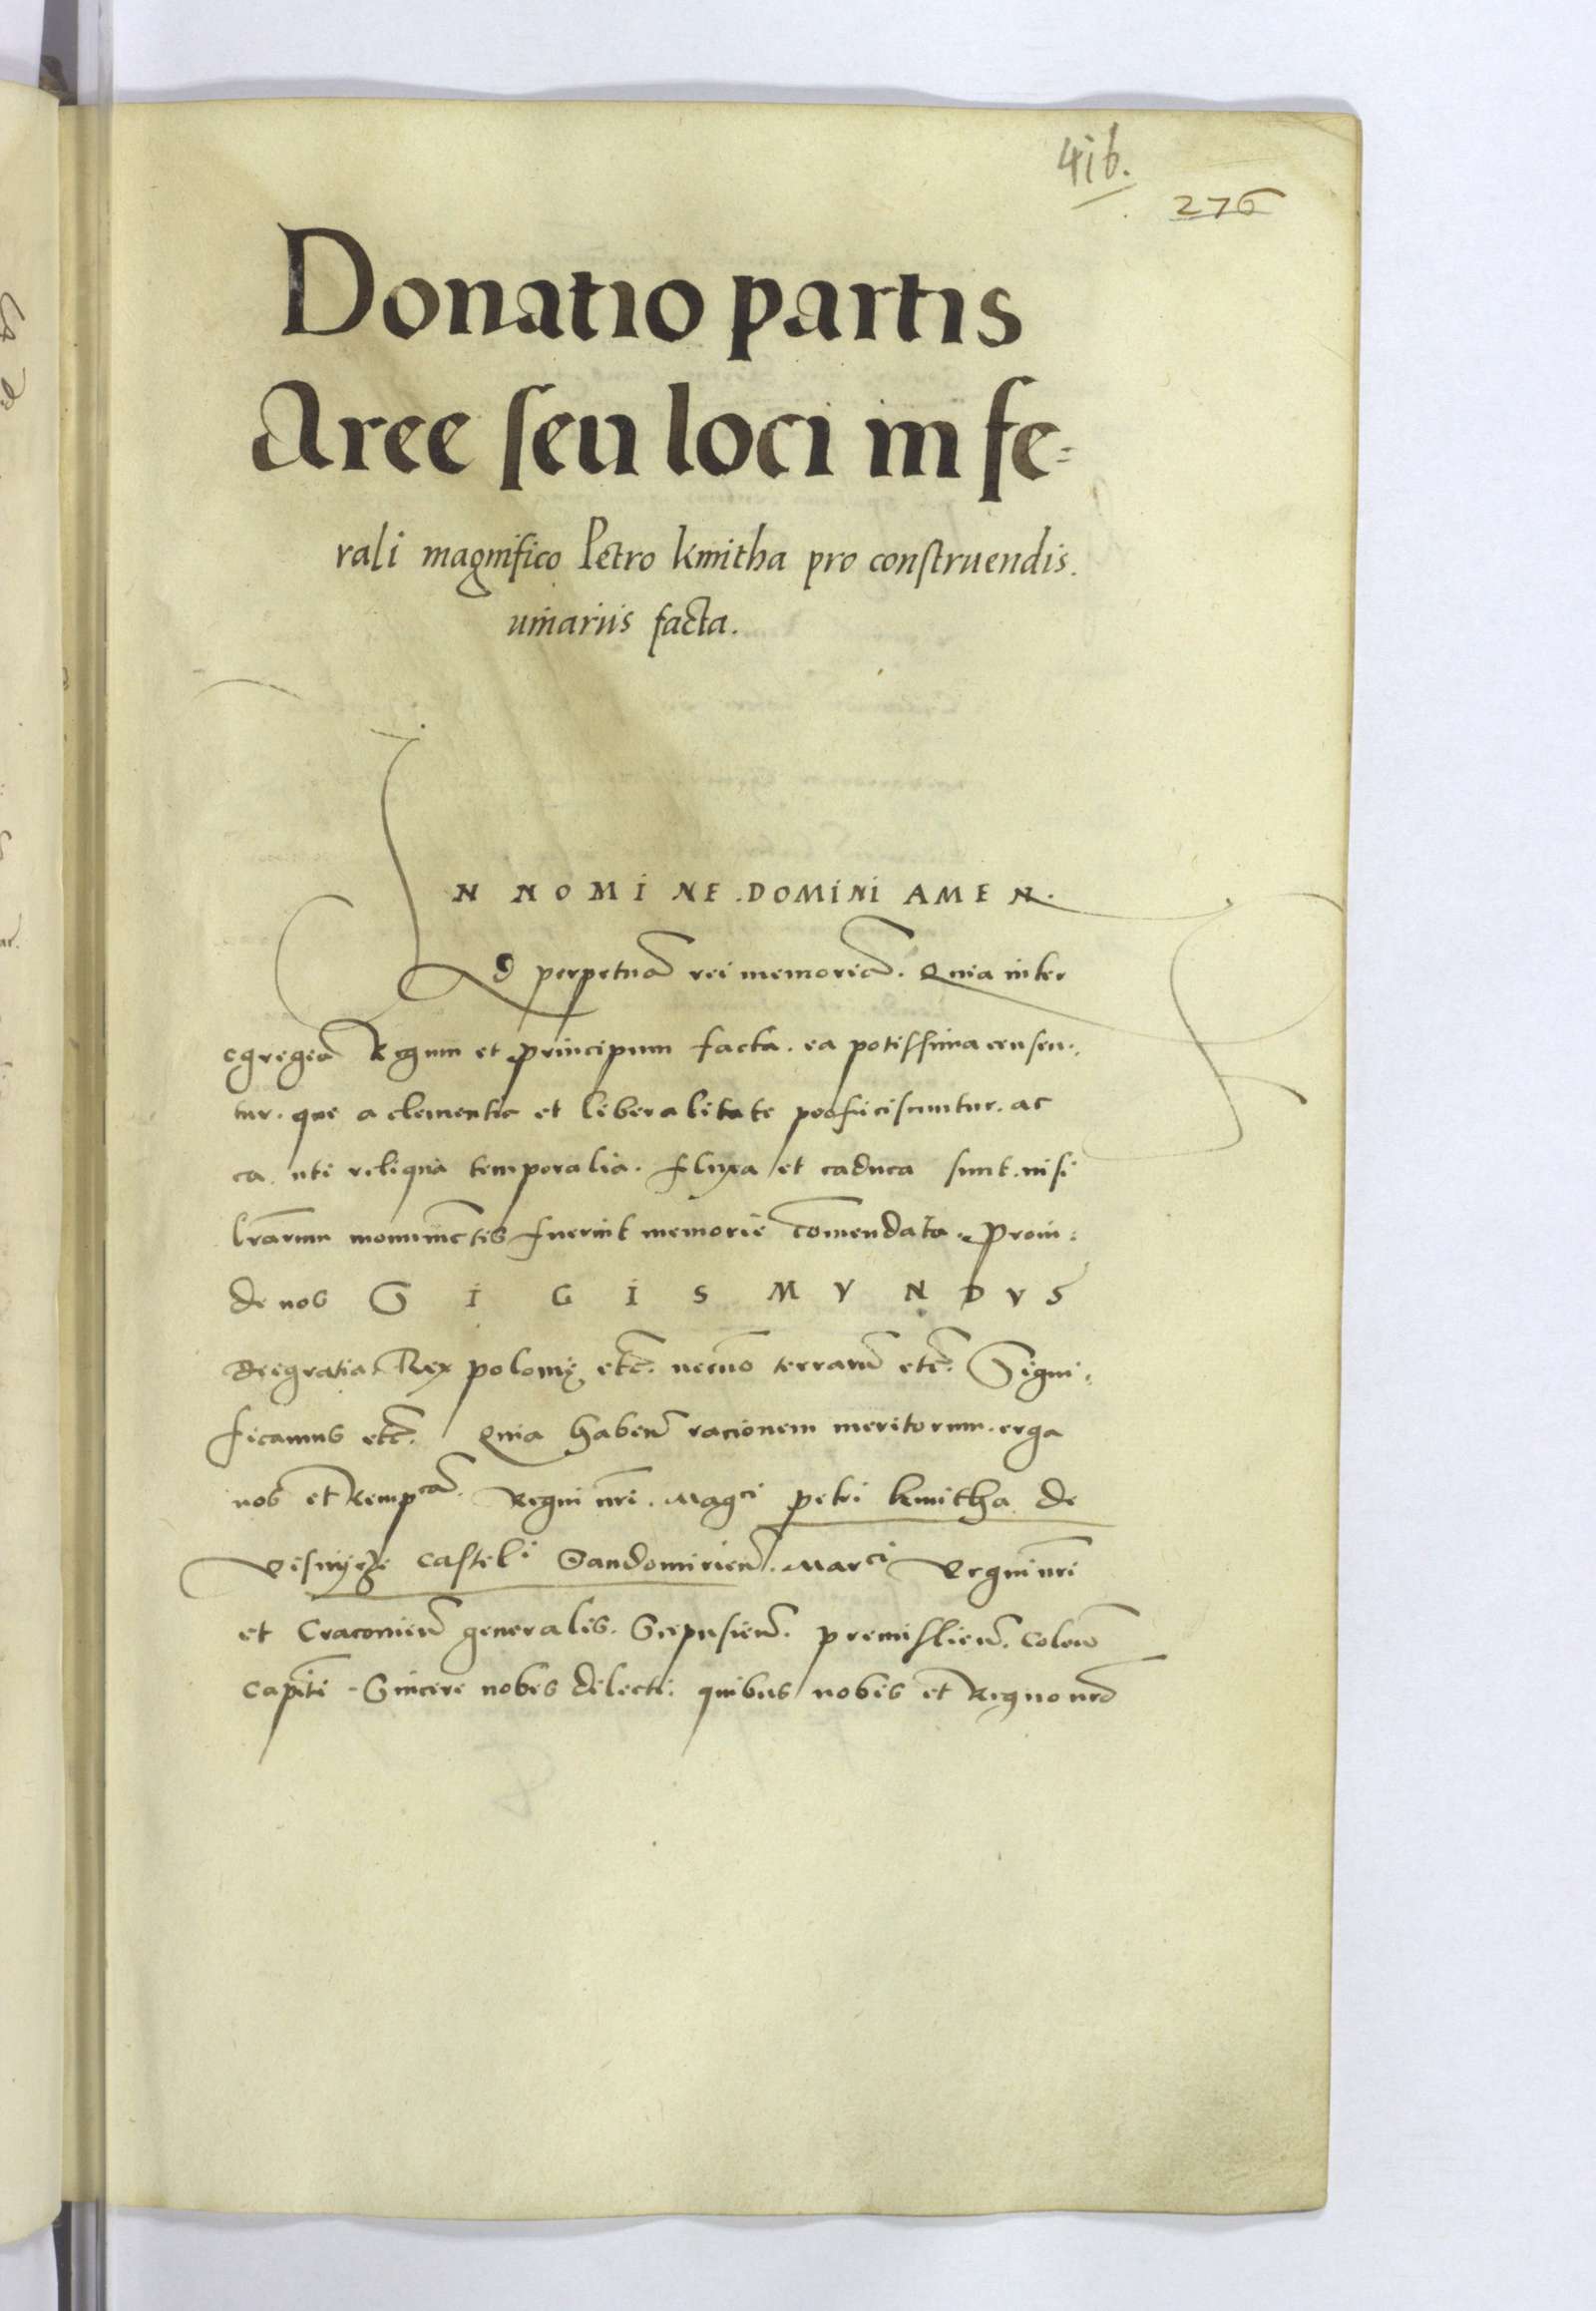 416.
276
Donatio partis
Aree seu loci in fe=
rali magnifico Petro Kmitha pro construendis.
vinariis facta.
IN NOMINE . DOMINI AMEN .
Ad perpetuã rei memoriã . Quia inter
egregia Regum et principum facta . ea potissima censen:
tur . que a clementia et liberalitate proficiscuntur . ac
ea . uti reliqua temporalia . fluxa et caduca sunt . nisi
lrarum monumẽtis fuerint memorie comendata . Proin:
de nos SIGISMVNDVS
Dei gratia Rex polonię etc̃ . necnõ terrarũ etc̃ . Signi:
ficamus etc̃ . Quia habeñ racionem meritorum . erga
nos et Rempcã . Regni nri . Magci petri Kmitha de
Visnÿcze Casteli Sandomirieñ . Marci Regni nri
et Cracovieñ generalis . Scepusieñ . premislieñ . Coleñ
Capitei . Sincere nobis dilecti . quibus nobis et Regno nrõ